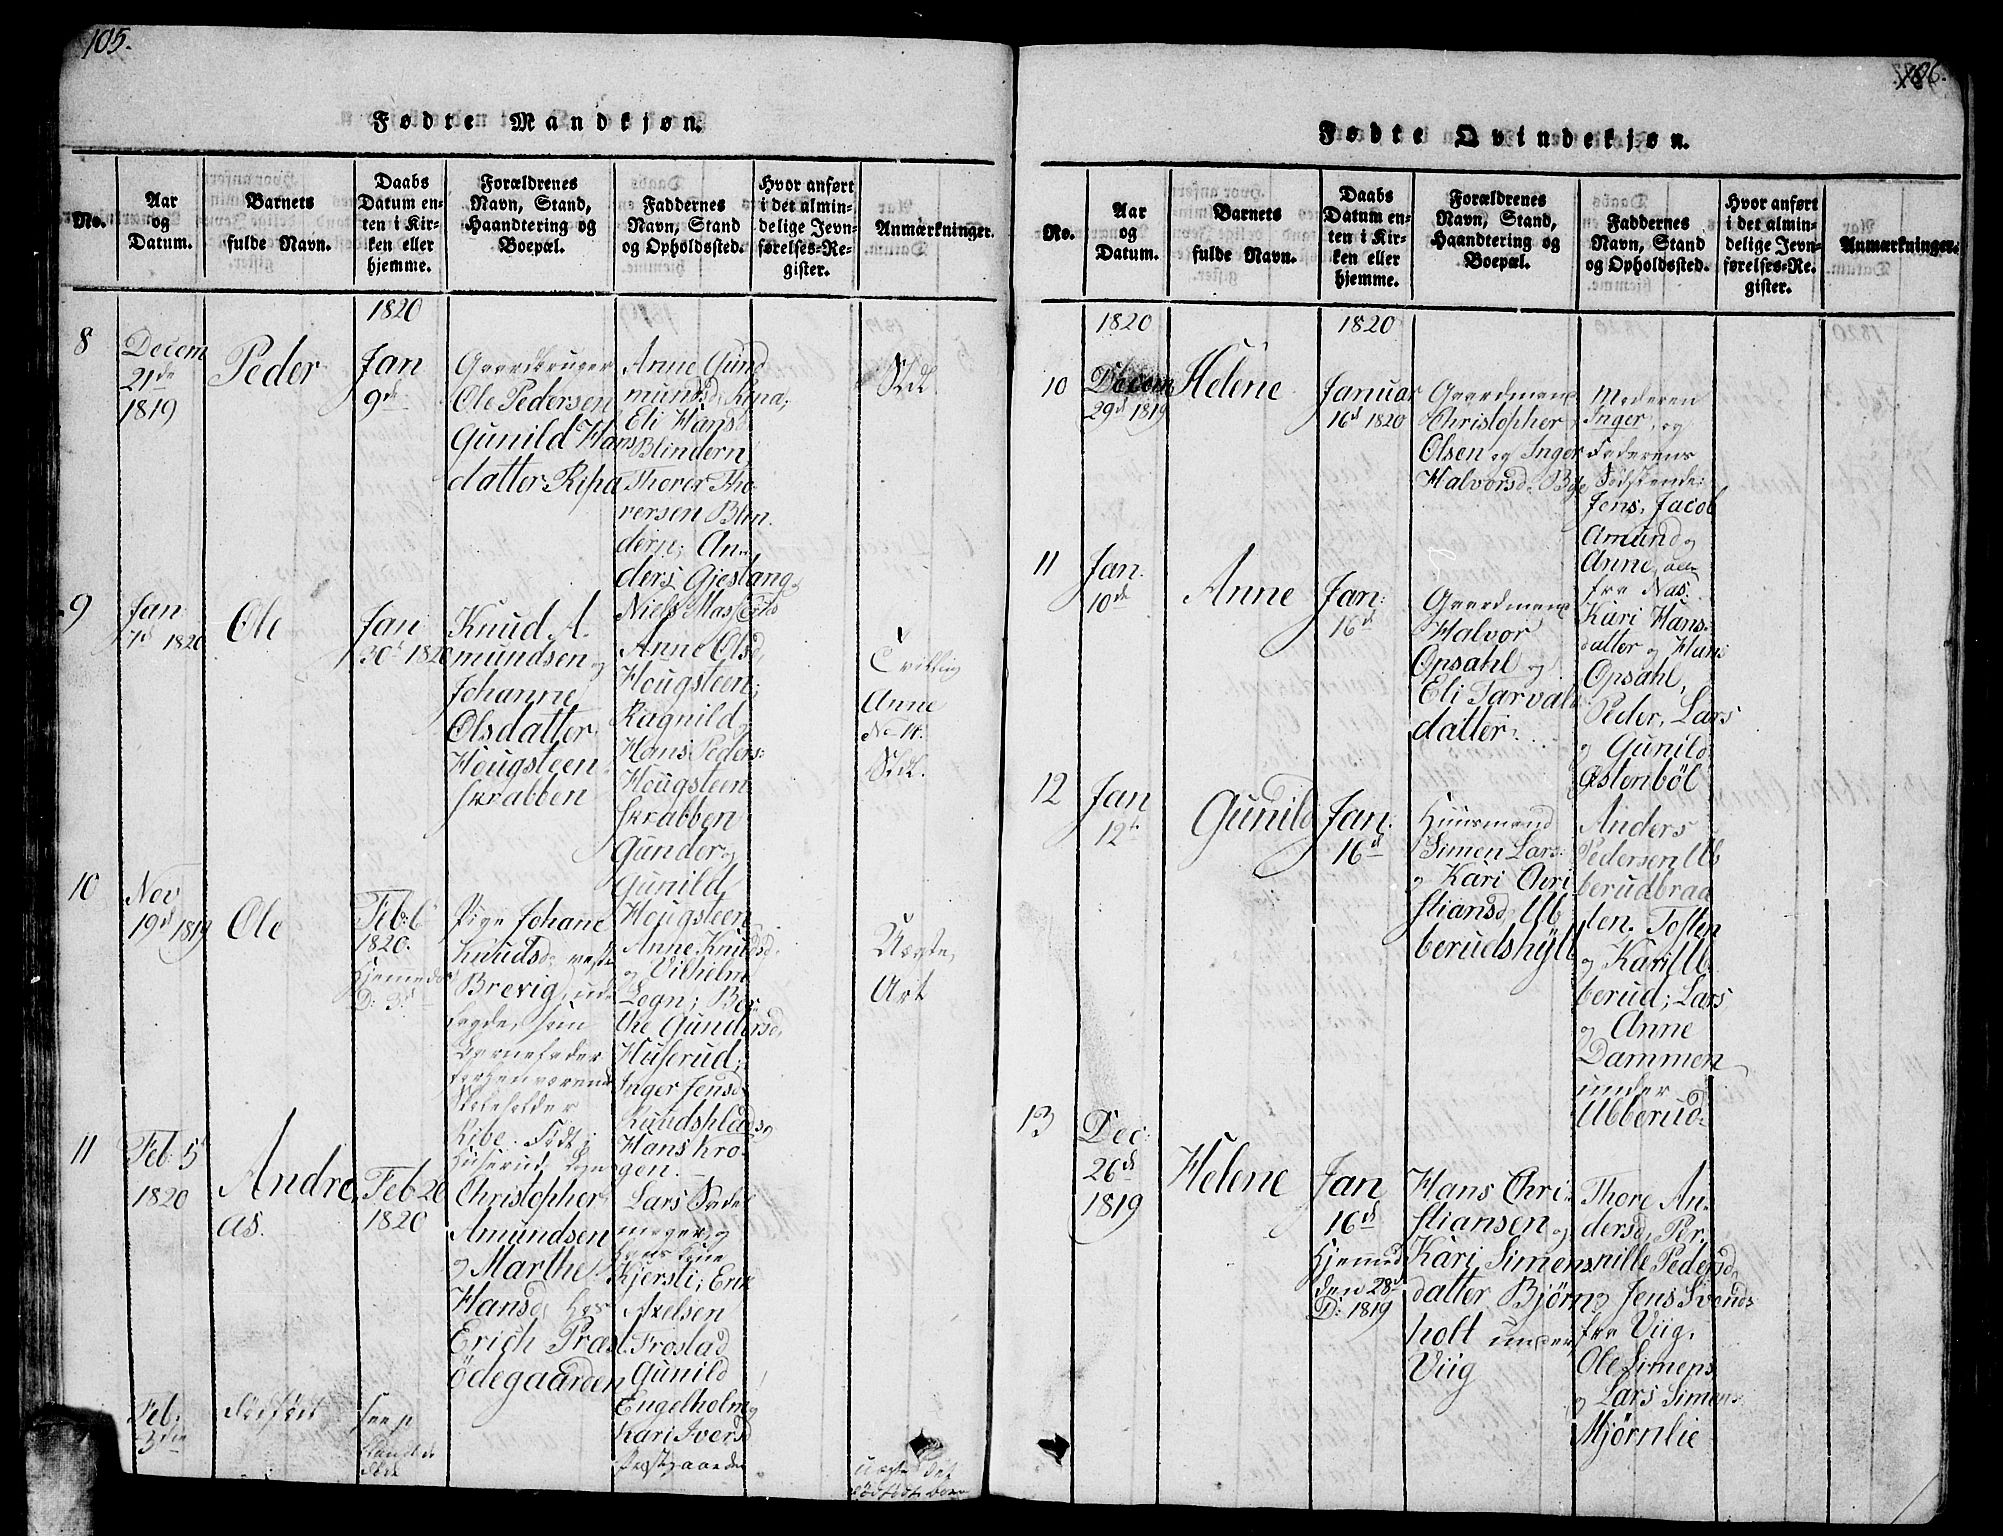 105.
Fødte Mandkjøn.
No.
Aar
og
Datum.
Barnets
fulde Navn.
Daabs
Datum en-
ten i Kir-
ken eller
hjemme.
Forældrenes
Navn, Stand,
Haandtering og
Boepæl.
Faddernes
Navn, Stand
og Opholdssted.
Hvor anført
i det almin-
delige Jevn-
førelses-Re-
gister.
Anmærkninger.
8
Decem
21de
1819
Peder
1820
Jan
9de
Gaardbruger
Ole Pedersen
Gunild Hans
datter Ripa
Anne Gund
mundsd. Ripa;
Eli Hans
Blindern
Thorer Tho-
rersen Blin
dern; An-
ders Gjeslang
9
Jan
7d 1820
Ole
Jan
30t 1820
Knud A-
mundsen og
Johanne
Olsdatter
Hougsteen
skrabben
Niels
Anne Olsd,
Hougsteen;
Ragnild og
Hans Peders:
Hougsteen
skrabben
Gunder og
Gunild
Hougsteen
Tvilling
Anne
No 14.
10
Nov
19d 1819
Ole
Feb: 6
1820.
Hjemmedøbt
D: 3d
Pige Johane
Knudsd.
Brevig, ud-
lagde, som
Barnefader
forhenværende
Skoleholder
Ribe. Født i
Huserud
Anne Knudsd.
og Vilhelm
Logn; Ber
the Gundersd,
Huserud;
Inger Jensd
og
Hans Kro-
gen.
Uægte
Art
11
Feb: 5
1820
Andre
as.
Feb 20
1820
Christopher
Amundsen
og Marthe
Hansd,
Erich Præst
ödegaarden
Lars
og
hans Kone
Kjersti; Erik
Axelsen
Frostad
Gunild
Engelholm og
Kari Iversd
Præstgaarden
Feb:
3die
Dødfødt
uægte
dødfødt Barn
106.
Fødte Qvindekjøn.
No.
Aar
og
Datum.
Barnets
fulde Navn.
Daabs
Datum en-
ten i Kir-
ken eller
hjemme.
Forældrenes
Navn, Stand,
Haandtering og
Boepæl.
Faddernes
Navn, Stand
og Opholdssted.
Hvor anført
i det almin-
delige Jevn-
førelses-Re-
gister.
Anmærkninger.
1820
1820
10
Decem
29d 1819
Helene
Januar
16d 1820
Gaardmand
Christopher
Olsen og Inger
Halvorsd. Bye
Moderen
Inger, og
Faderens
Södskende:
Jens, Jacob
Amund og
Anne, alle
fra Nas.
11
Jan.
10de
Anne
Jan:
16d
Gaardmand
Halvor
Opsahl og
Eli Tarvald
datter.
Kari Hans-
datter og Hans
Opsahl,
Peder, Lars
og Gunild
Østenböl
12
Jan
12te
Gunild
Jan:
16d
Huusmand
Simen Lars:
og Kari Chri
stiansd, Ub
berudshyll
Anders
Pedersen Ub
berudbraa
ten. Tosten
og Kari Ub-
berud; Lars
og Anne
Dammen
under
Ubberud
13
Dec:
26d
1819
Helene
Jan
16d
Hjemmed
den 28d
D: 1819
Hans Chri-
stiansen og
Kari Simens
datter Bjørn
holt under
Viig
Thore An-
dersd, Per-
nille Pedersd,
og Jens Svends
fra Viig,
Ole Simens
og Lars Simens
Mjörnlie